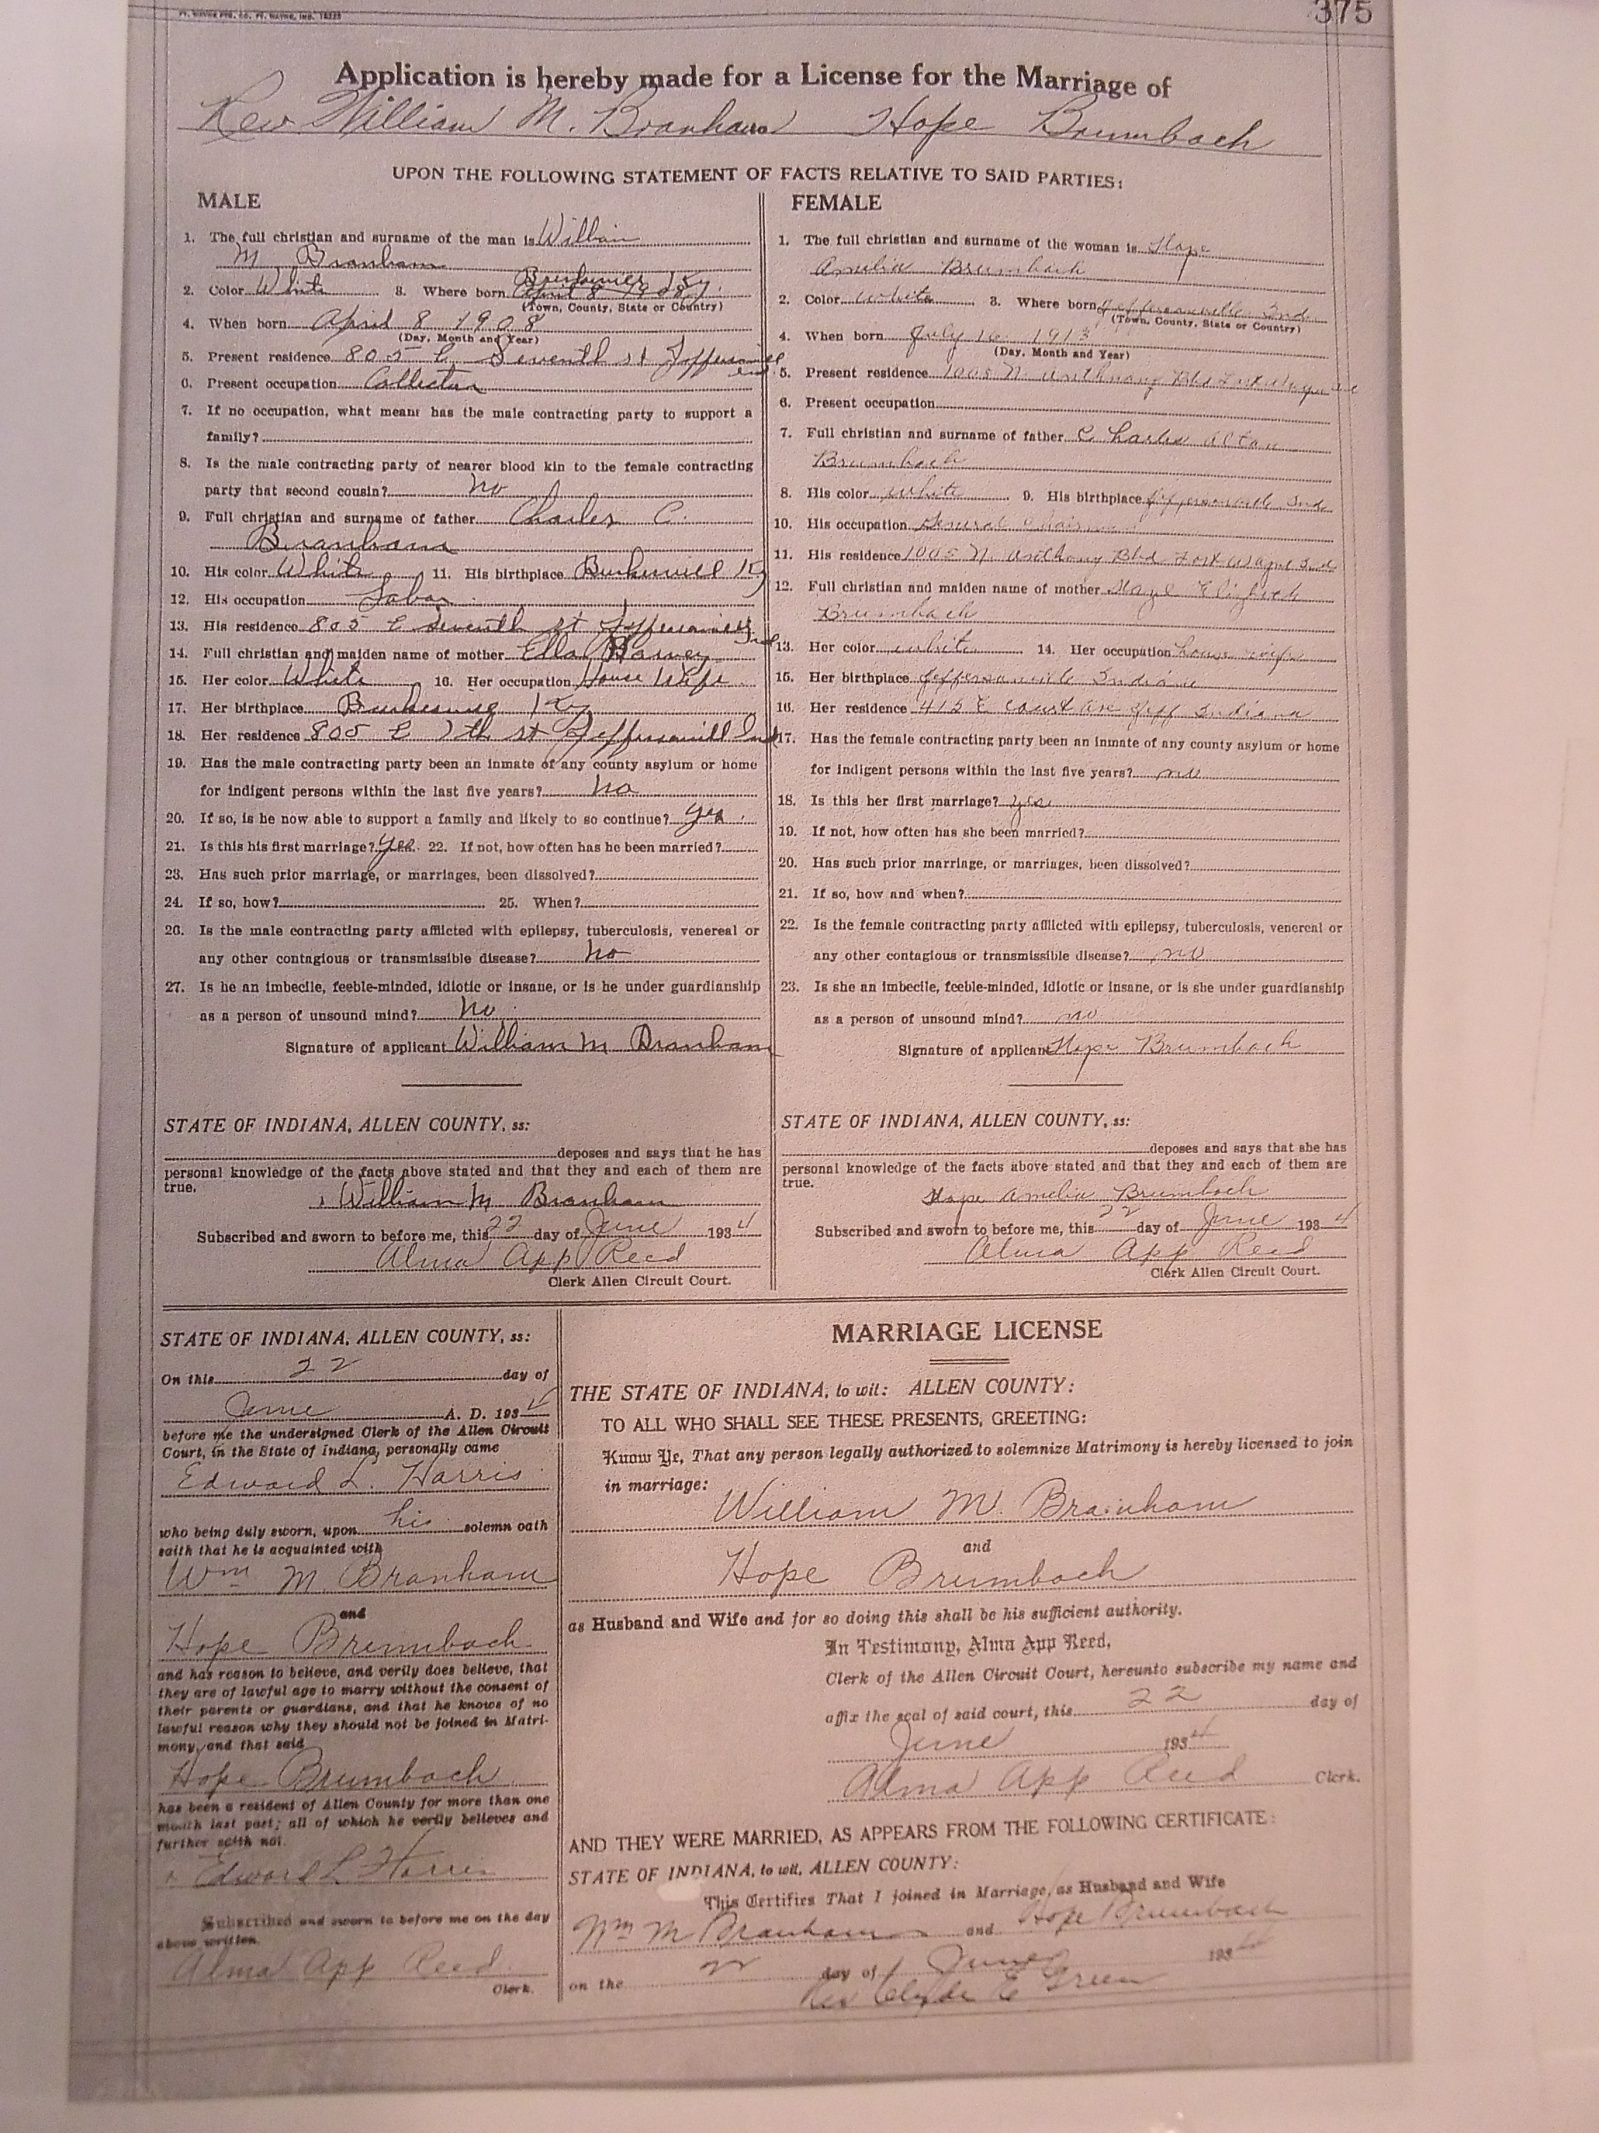 FT. WAYNE PTG. CO. FT. WAYNE, IND.
375
Application is hereby made for a License for the Marriage of
Rev William M. Branham Hope Brumbach
UPON THE FOLLOWING STATEMENT OF FACTS RELATIVE TO SAID PARTIES:
MALE
1. The full christian and surname of the man is William
M Branham
2. Color White 3. Where born Ky.
April 8 1908
(Town, County, State or Country)
4. When born April 8 1908
(Day, Month and Year)
5. Present residence 805 E Seventh st
6. Present occupation
7. If no occupation, what means has the male contracting party to support a
family?
8. Is the male contracting party of nearer blood kin to the female contracting
party that second cousin? no
9. Full christian and surname of father Charles C.
Branham
10. His color White 11. His birthplace Ky
12. His occupation Labor
13. His residence 805 E Seventh st
14. Full christian and maiden name of mother Ella Harvey
15. Her color White 16. Her occupation House Wife
17. Her birthplace Ky
18. Her residence 805 E 7th st Jeffersonvill Ind
19. Has the male contracting party been an inmate of any county asylum or home
for indigent persons within the last five years? no
20. If so, is he now able to support a family and likely to so continue? yes
21. Is this his first marriage? yes 22. If not, how often has he been married?
23. Has such prior marriage, or marriages, been dissolved?
24. If so, how? 25. When?
26. Is the male contracting party afflicted with epilepsy, tuberculosis, venereal or
any other contagious or transmissible disease? no
27. Is he an imbecile, feeble-minded, idiotic or insane, or is he under guardianship
as a person of unsound mind? no
Signature of applicant William M Branham
STATE OF INDIANA, ALLEN COUNTY, ss:
deposes and says that he has
personal knowledge of the facts above stated and that they and each of them are
true.
William M Branham
Subscribed and sworn to before me, this 22 day of June 1934
Alma App Reed
Clerk Allen Circuit Court.
FEMALE
1. The full christian and surname of the woman is Hope
Amelia Brumbach
2. Color white 3. Where born Jeffersonville Ind.
(Town, County, State or Country)
4. When born July 16 1913
(Day, Month and Year)
5. Present residence 1005 N. Anthony Blvd Fort Wayne
6. Present occupation
7. Full christian and surname of father Charles
Brumbach
8. His color white 9. His birthplace Ind
10. His occupation General Chairman
11. His residence 1005 N. Anthony Blvd Fort Wayne Ind
12. Full christian and maiden name of mother
Brumbach
13. Her color white 14. Her occupation house wife
15. Her birthplace Jeffersonville Indiana
16. Her residence 415 E Court ave Jeff Indiana
17. Has the female contracting party been an inmate of any county asylum or home
for indigent persons within the last five years? no
18. Is this her first marriage? yes
19. If not, how often has she been married?
20. Has such prior marriage, or marriages, been dissolved?
21. If so, how and when?
22. Is the female contracting party afflicted with epilepsy, tuberculosis, venereal or
any other contagious or transmissible disease? no
23. Is she an imbecile, feeble-minded, idiotic or insane, or is she under guardianship
as a person of unsound mind? no
Signature of applicant Hope Brumbach
STATE OF INDIANA, ALLEN COUNTY, ss:
deposes and says that she has
personal knowledge of the facts above stated and that they and each of them are
true.
Hope Amelia Brumbach
Subscribed and sworn to before me, this 22 day of June 1934
Alma App Reed
Clerk Allen Circuit Court.
STATE OF INDIANA, ALLEN COUNTY, ss:
On this 22 day of
June A. D. 1934
before me the undersigned Clerk of the Allen Circuit
Court, in the State of Indiana, personally came
Edward L. Harris
who being duly sworn, upon his solemn oath
saith that he is acquainted with
Wm M Branham
and
Hope Brumbach
and has reason to believe, and verily does believe, that
they are of lawful age to marry without the consent of
their parents or guardians, and that he knows of no
lawful reason why they should not be joined in Matri-
mony, and that said
Hope Brumbach
has been a resident of Allen County for more than one
month last past; all of which he verily believes and
further saith not.
Edward L Harris
Subscribed and sworn to before me on the day
above written.
Alma App Reed
Clerk.
MARRIAGE LICENSE
THE STATE OF INDIANA, to wit: ALLEN COUNTY:
TO ALL WHO SHALL SEE THESE PRESENTS, GREETING:
Know Ye, That any person legally authorized to solemnize Matrimony is hereby licensed to join
in marriage:
William M. Branham
and
Hope Brumbach
as Husband and Wife and for so doing this shall be his sufficient authority.
In Testimony, Alma App Reed,
Clerk of the Allen Circuit Court, hereunto subscribe my name and
affix the seal of said court, this 22 day of
June 1934
Alma App Reed Clerk.
AND THEY WERE MARRIED, AS APPEARS FROM THE FOLLOWING CERTIFICATE:
STATE OF INDIANA, to wit, ALLEN COUNTY:
This Certifies That I joined in Marriage, as Husband and Wife
Wm M Branham and Hope Brumbach
on the 22 day of June 1934
Rev Clyde E Green